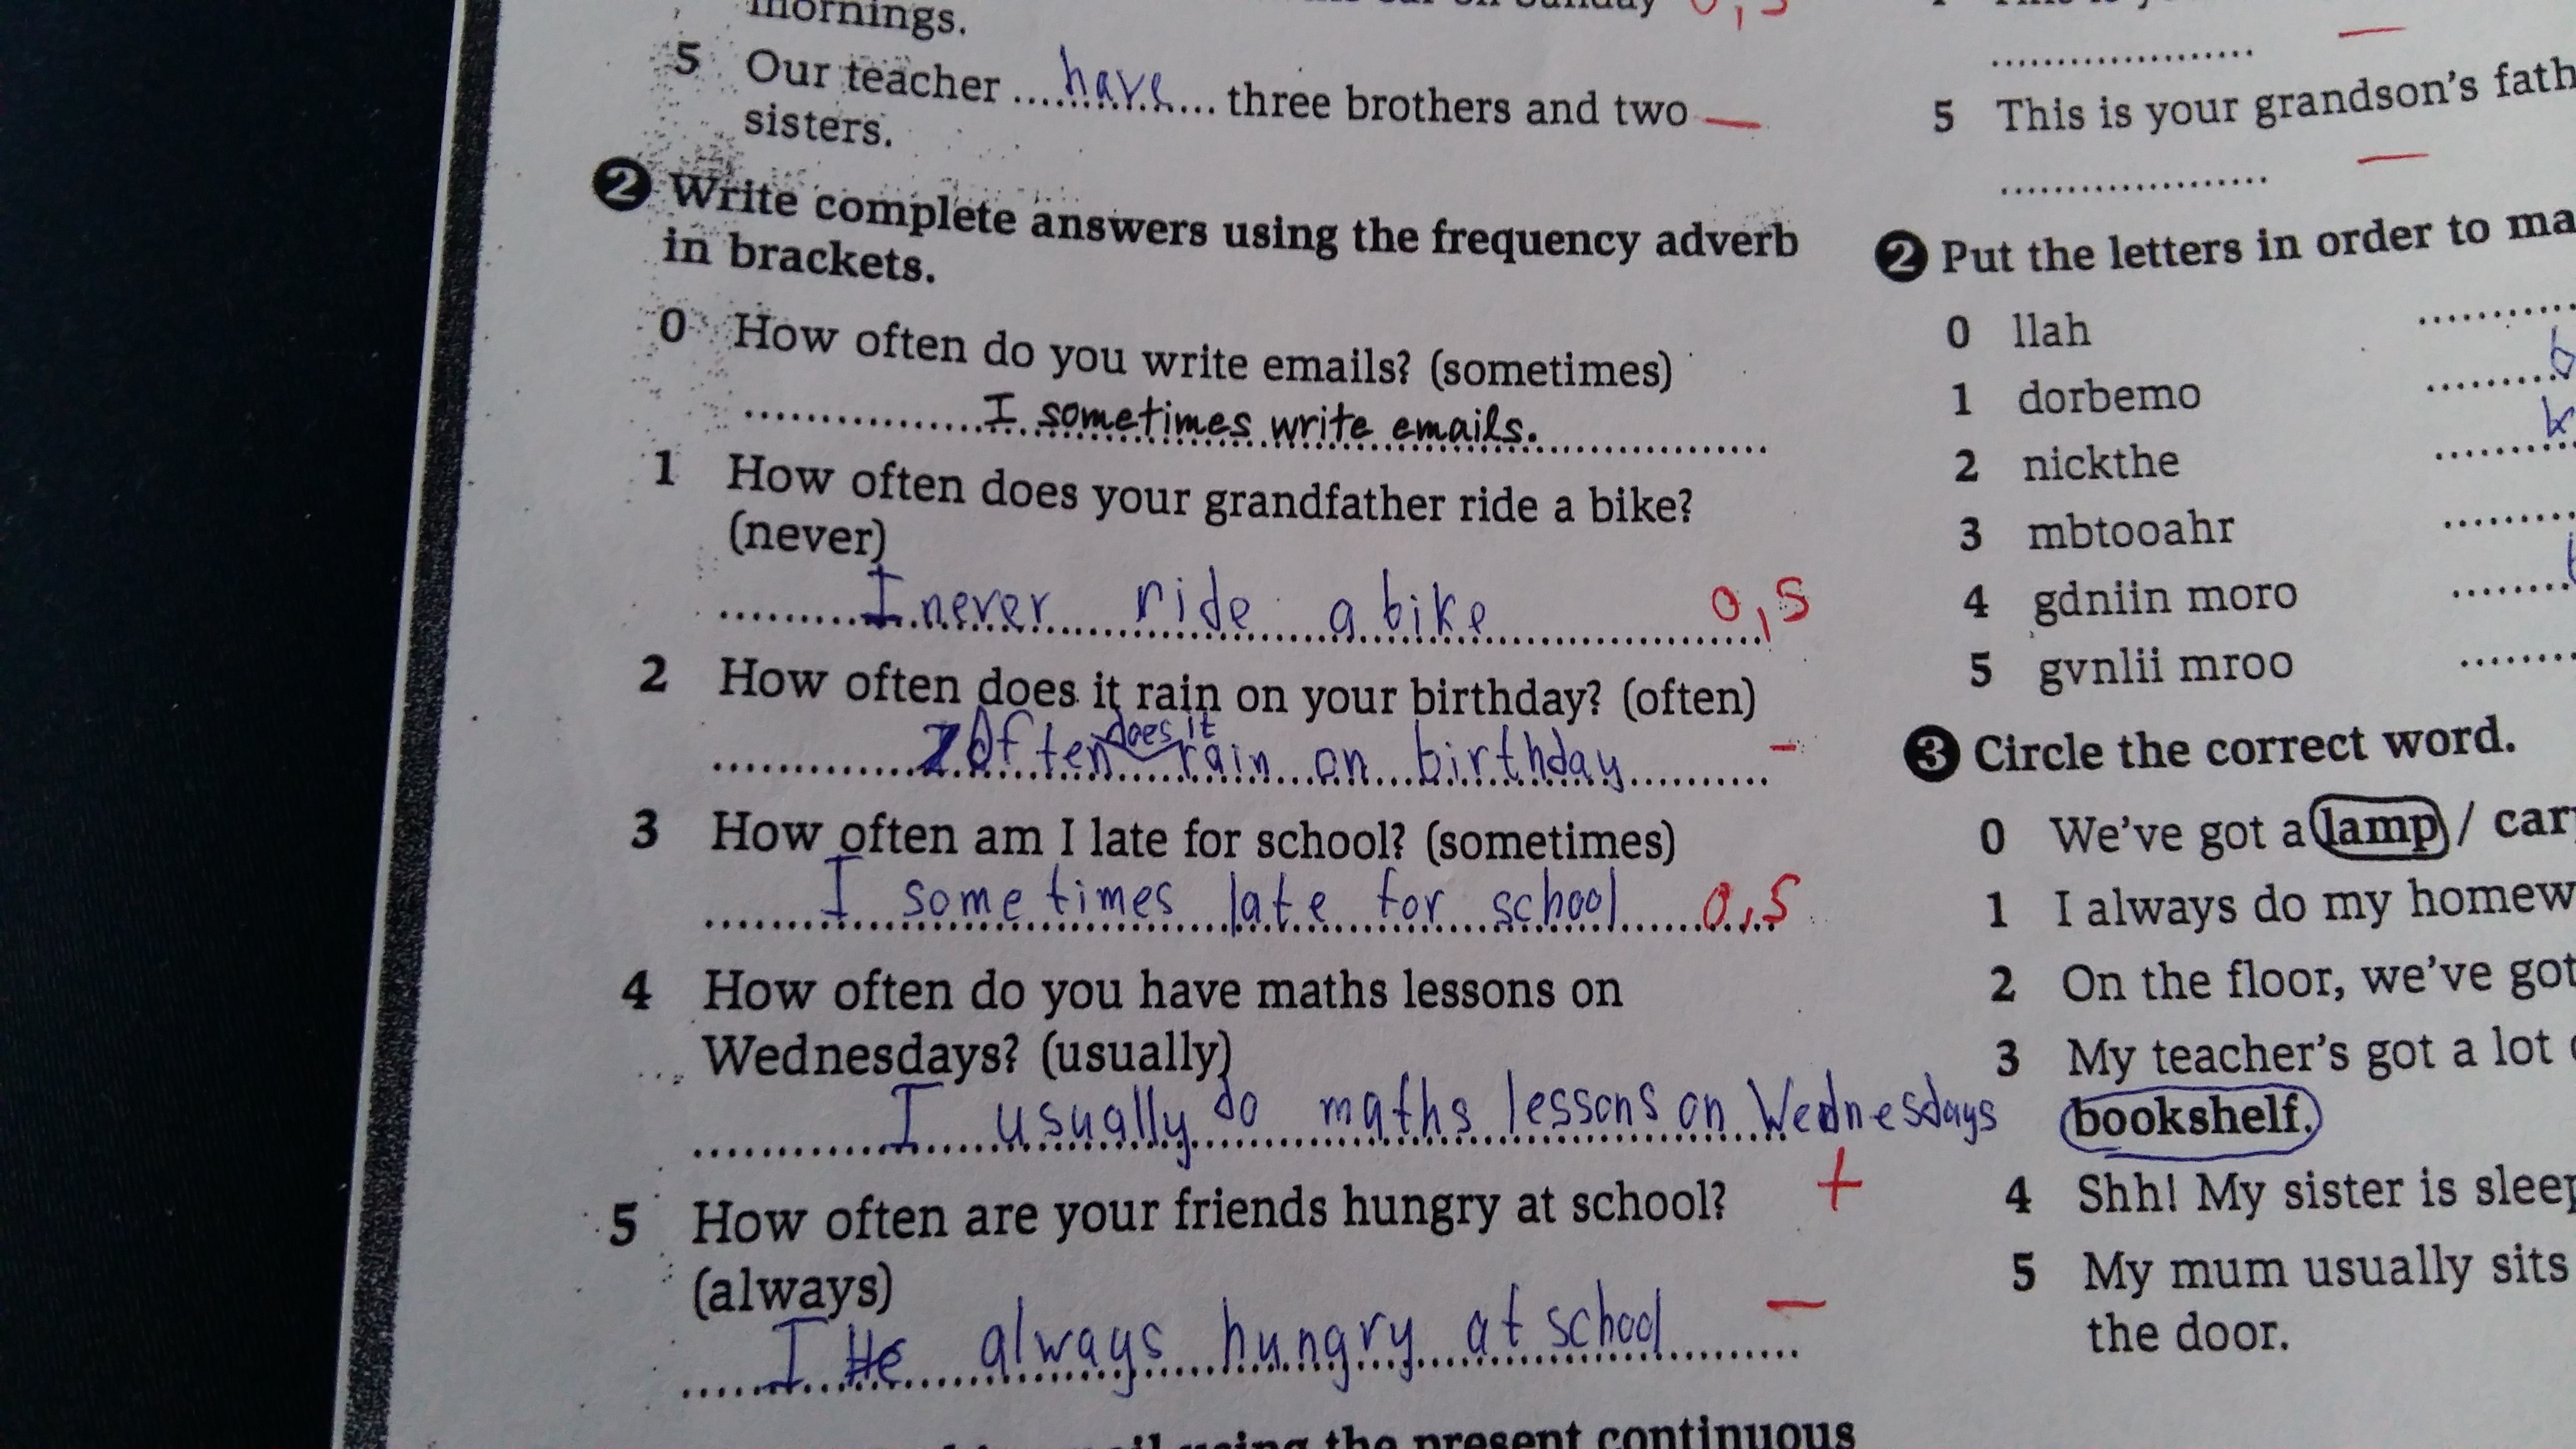 mornings.
5 Our teacher ....have.... three brothers and two —
sisters.
2 Write complete answers using the frequency adverb
in brackets.
0 How often do you write emails? (sometimes)
I sometimes write emails.
1 How often does your grandfather ride a bike?
(never)
I never ride a bike 0,5
2 How often does it rain on your birthday? (often)
Often does it rain on birthday –
3 How often am I late for school? (sometimes)
I sometimes late for school 0,5
4 How often do you have maths lessons on
Wednesdays? (usually)
I usually do maths lessons on Wednesdays
+
5 How often are your friends hungry at school?
(always)
I He always hungry at school –
using the present continuous
5 This is your grandson's fath
2 Put the letters in order to ma
0 llah
1 dorbemo
2 nickthe
3 mbtooahr
4 gdniin moro
5 gvnlii mroo
3 Circle the correct word.
0 We've got a lamp / car
1 I always do my homew
2 On the floor, we've got
3 My teacher's got a lot
bookshelf.
4 Shh! My sister is sleep
5 My mum usually sits
the door.